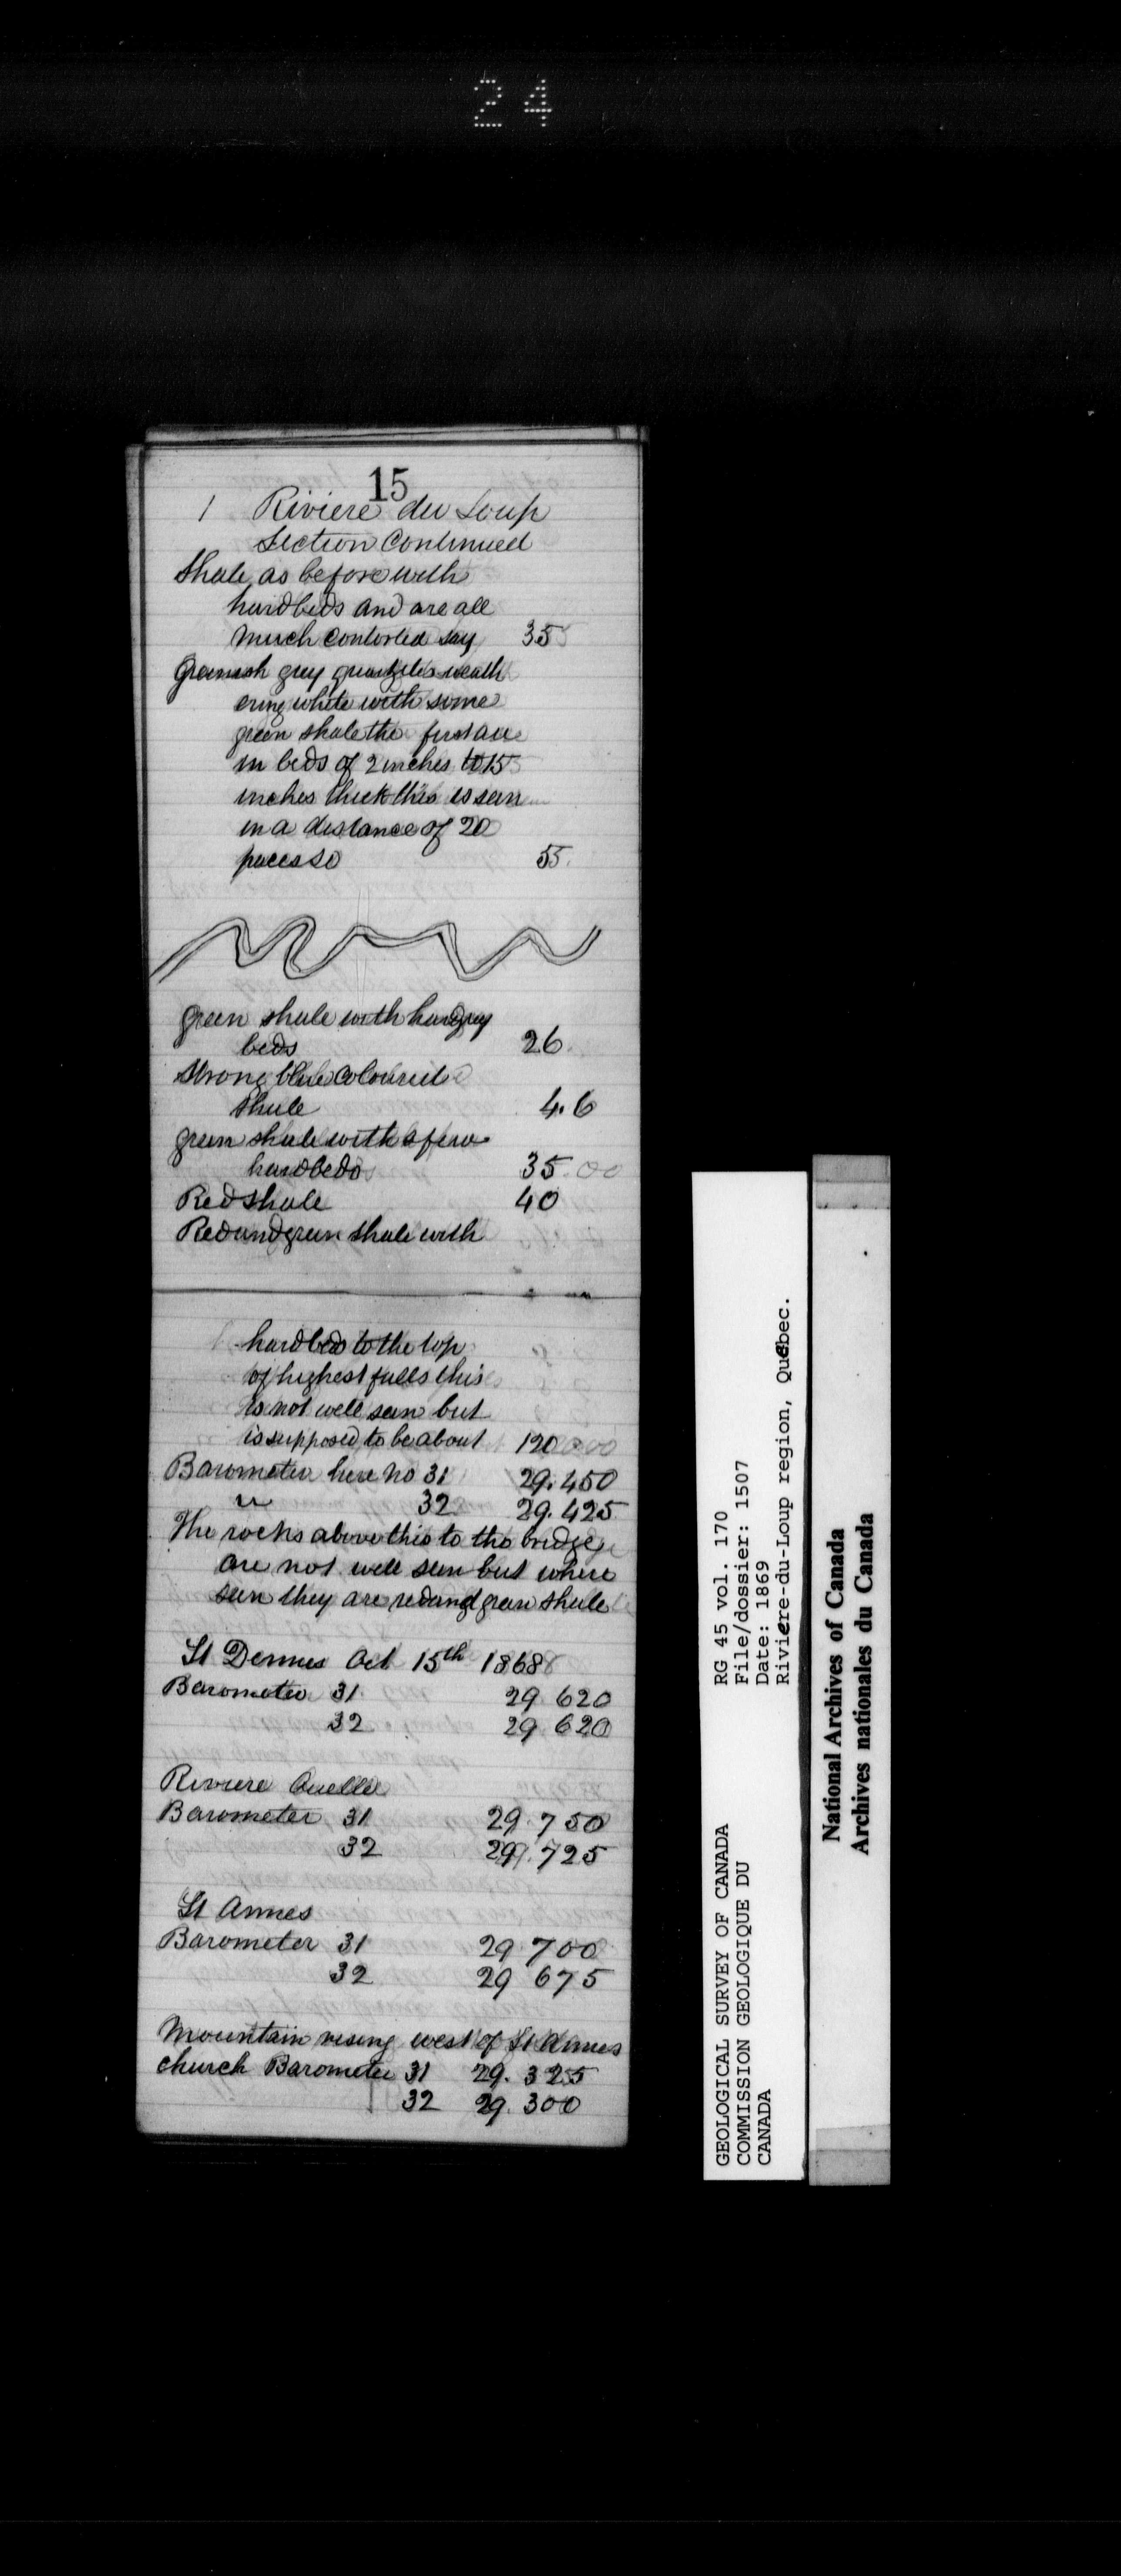 24
15
1 Riviere du Loup
Section Continued
Shale as before with
hard beds and are all
much contorted say 35
Greenish grey quartzites weath
ering white with some
green shale the first are
in beds of 2 inches to 15
inches thick this is seen
in a distance of 20
paces so 55.
green shale with hard grey
beds 26.
Strong blue coloured
shale 4.6
green shale with a few
hard beds 35.00
Red shale 40
Red and green shale with
hard beds to the top
of highest falls this
is not well seen but
is supposed to be about 120
Barometer here no 31 29.450
" 32 29.425
The rocks above this to the bridge
are not well seen but where
seen they are red and green shale
St Dennes Oct 15th 1868
Barometer 31. 29 620
32 29 620
Riviere Ouelle
Barometer 31 29.750
32 29.725
St Annes
Barometer 31 29 700
32 29 675
Mountain rising west of St Annes
church Barometer 31 29. 325
32 29. 300
RG 45 vol. 170
File/dossier: 1507
Date: 1869
Riviere-du-Loup region, Québec.
GEOLOGICAL SURVEY OF CANADA
COMMISSION GEOLOGIQUE DU
CANADA
National Archives of Canada
Archives nationales du Canada